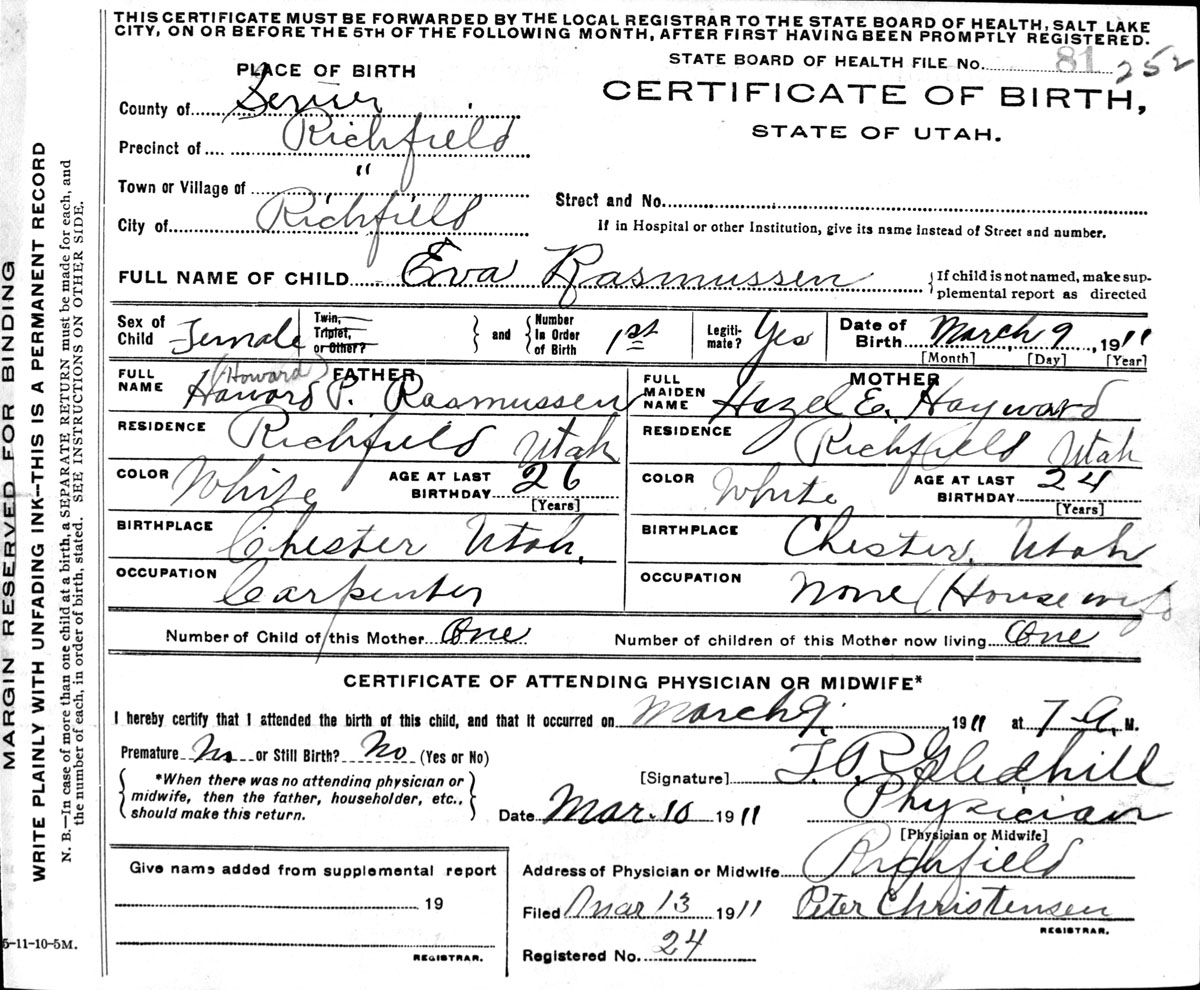 THIS CERTIFICATE MUST BE FORWARDED BY THE LOCAL REGISTRAR TO THE STATE BOARD OF HEALTH, SALT LAKE
CITY, ON OR BEFORE THE 5TH OF THE FOLLOWING MONTH, AFTER FIRST HAVING BEEN PROMPTLY REGISTERED.
STATE BOARD OF HEALTH FILE No. 81 252
PLACE OF BIRTH
CERTIFICATE OF BIRTH,
STATE OF UTAH.
County of Sevier
Precinct of Richfield
Town or Village of "
Street and No.
City of Richfield
If in Hospital or other Institution, give its name instead of Street and number.
FULL NAME OF CHILD Eva Rasmussen
If child is not named, make sup-
plemental report as directed
Sex of Child Female
Twin, Triplet, or Other? and Number in Order of Birth 1st
Legiti-mate? Yes
Date of Birth March 9, 1911
[Month] [Day] [Year]
FATHER
FULL NAME (Howard) Haword P. Rasmussen
MOTHER
FULL MAIDEN NAME Hazel E. Hayward
RESIDENCE Richfield Utah
RESIDENCE Richfield Utah
COLOR White AGE AT LAST BIRTHDAY 26 [Years]
COLOR White AGE AT LAST BIRTHDAY 24 [Years]
BIRTHPLACE Chester Utah.
BIRTHPLACE Chester, Utah
OCCUPATION Carpenter
OCCUPATION None (Housewife
Number of Child of this Mother One Number of children of this Mother now living One
CERTIFICATE OF ATTENDING PHYSICIAN OR MIDWIFE*
I hereby certify that I attended the birth of this child, and that it occurred on March 9. 1911 at 7 A. M.
Premature No or Still Birth? No (Yes or No)
*When there was no attending physician or
midwife, then the father, householder, etc.,
should make this return.
[Signature] T. R. Gledhill
Date Mar. 10 1911 Physician
[Physician or Midwife]
Give name added from supplemental report
19
REGISTRAR.
Address of Physician or Midwife Richfield
Filed Mar 13 1911 Peter Christensen
REGISTRAR.
Registered No. 24
MARGIN RESERVED FOR BINDING
WRITE PLAINLY WITH UNFADING INK--THIS IS A PERMANENT RECORD
N. B.—In case of more than one child at a birth, a SEPARATE RETURN must be made for each, and
the number of each, in order of birth, stated. SEE INSTRUCTIONS ON OTHER SIDE.
5-11-10-5M.